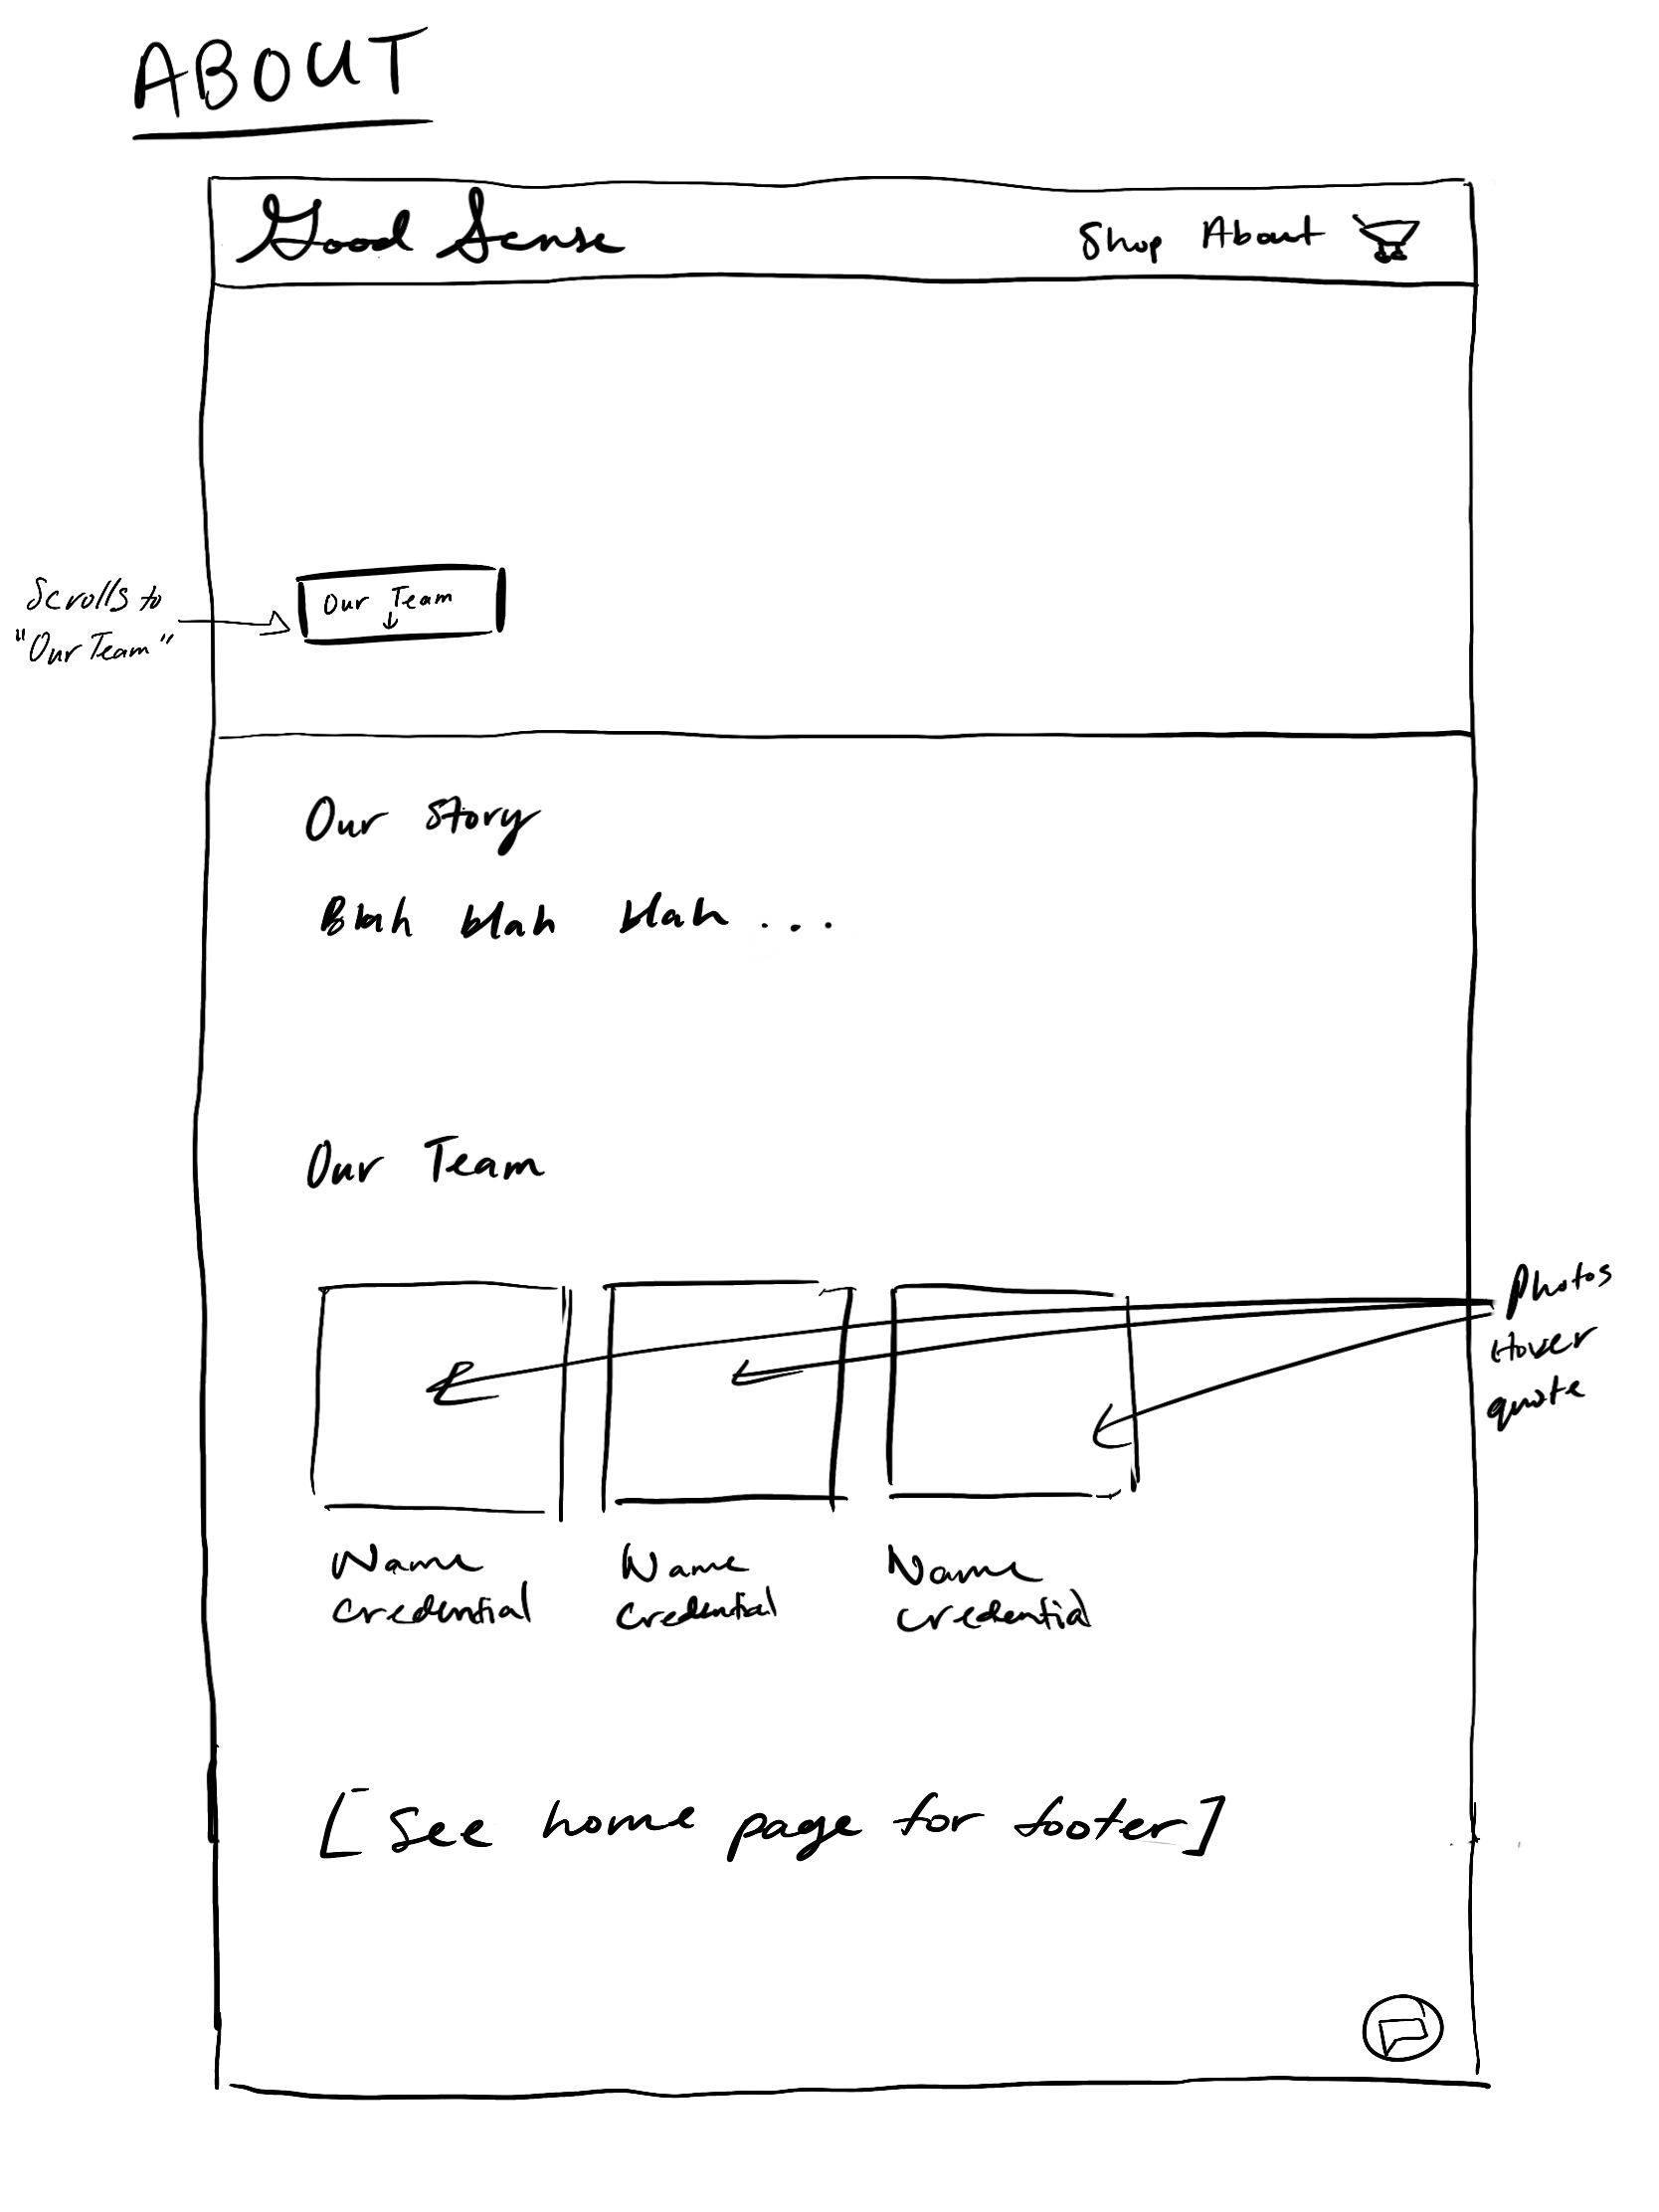 ABOUT
Good Sense
Shop About
Scrolls to
"Our Team"
Our Team
Our Story
Blah blah blah ...
Our Team
Photos
Hover
quote
Name
Credential
Name
Credential
Name
Credential
[See home page for footer]